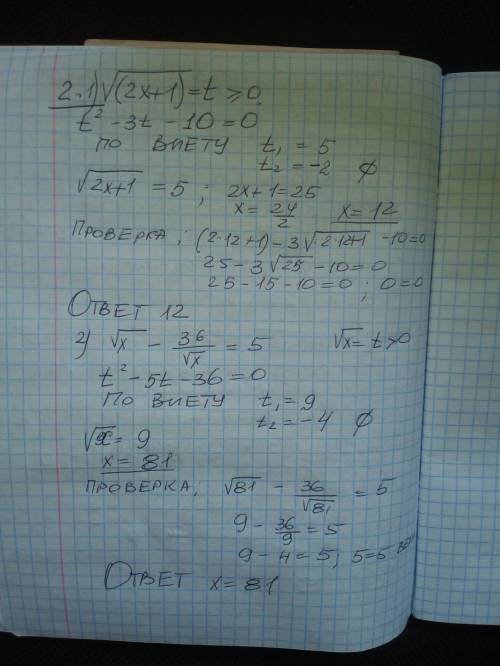 2.1) √(2x+1) = t ≥ 0
t² - 3t - 10 = 0
ПО ВИЕТУ t₁ = 5
t₂ = -2 ∅
√2x+1 = 5 ; 2x+1 = 25
x = 24/2 x = 12
ПРОВЕРКА ; (2·12+1) - 3√2·12+1 - 10 = 0
25 - 3√25 - 10 = 0
25 - 15 - 10 = 0 ; 0 = 0
ОТВЕТ 12
2) √x - 36/√x = 5 √x = t > 0
t² - 5t - 36 = 0
ПО ВИЕТУ t₁ = 9
t₂ = -4 ∅
√x = 9
x = 81
ПРОВЕРКА ; √81 - 36/√81 = 5
9 - 36/9 = 5
9 - 4 = 5 ; 5 = 5
ОТВЕТ x = 81